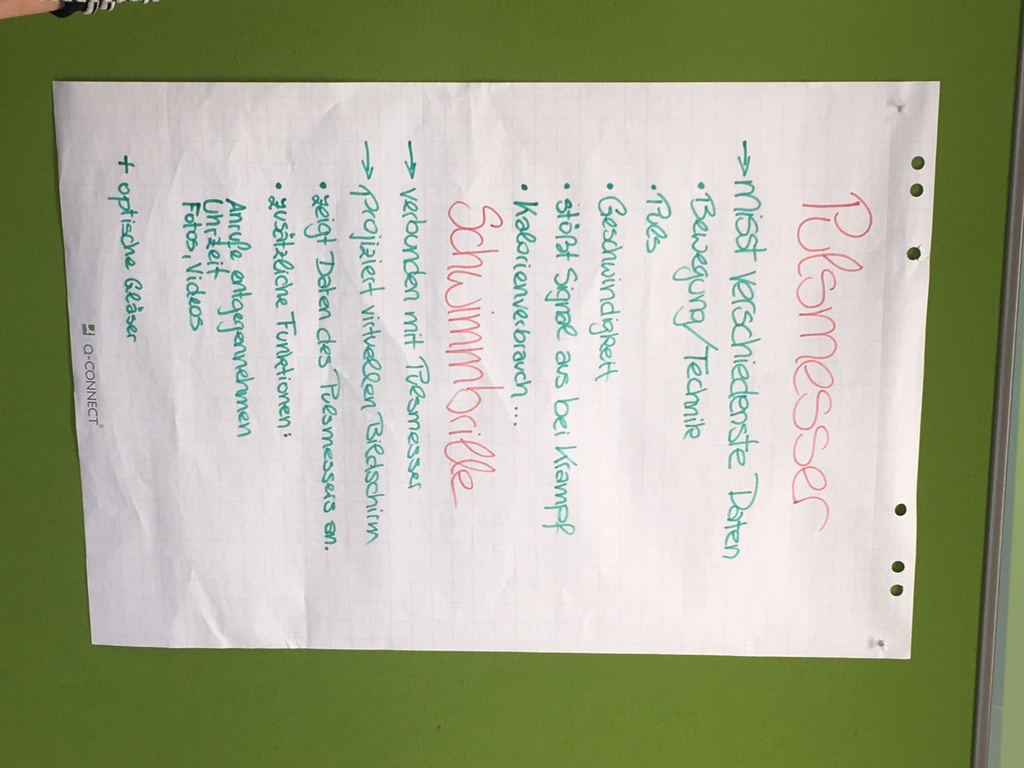 Pulsmesser
→ misst verschiedenste Daten
• Bewegung/Technik
• Puls
• Geschwindigkeit
• stößt Signal aus bei Krampf
• Kalorienverbrauch ...
Schwimmbrille
→ verbunden mit Pulsmesser
→ projiziert virtuellen Bildschirm
• zeigt Daten des Pulsmessers an.
• zusätzliche Funktionen:
Anrufe entgegennehmen
Uhrzeit
Fotos, Videos
+ optische Gläser
Q-CONNECT®